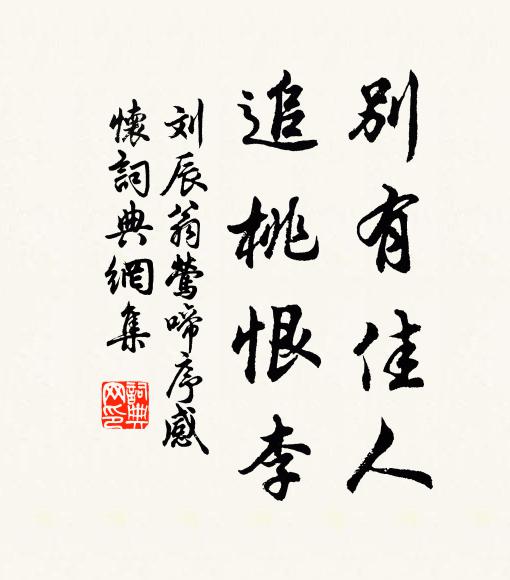 别有佳人
追桃恨李
刘辰翁莺啼序感
懷詞典網集
詞典
网印